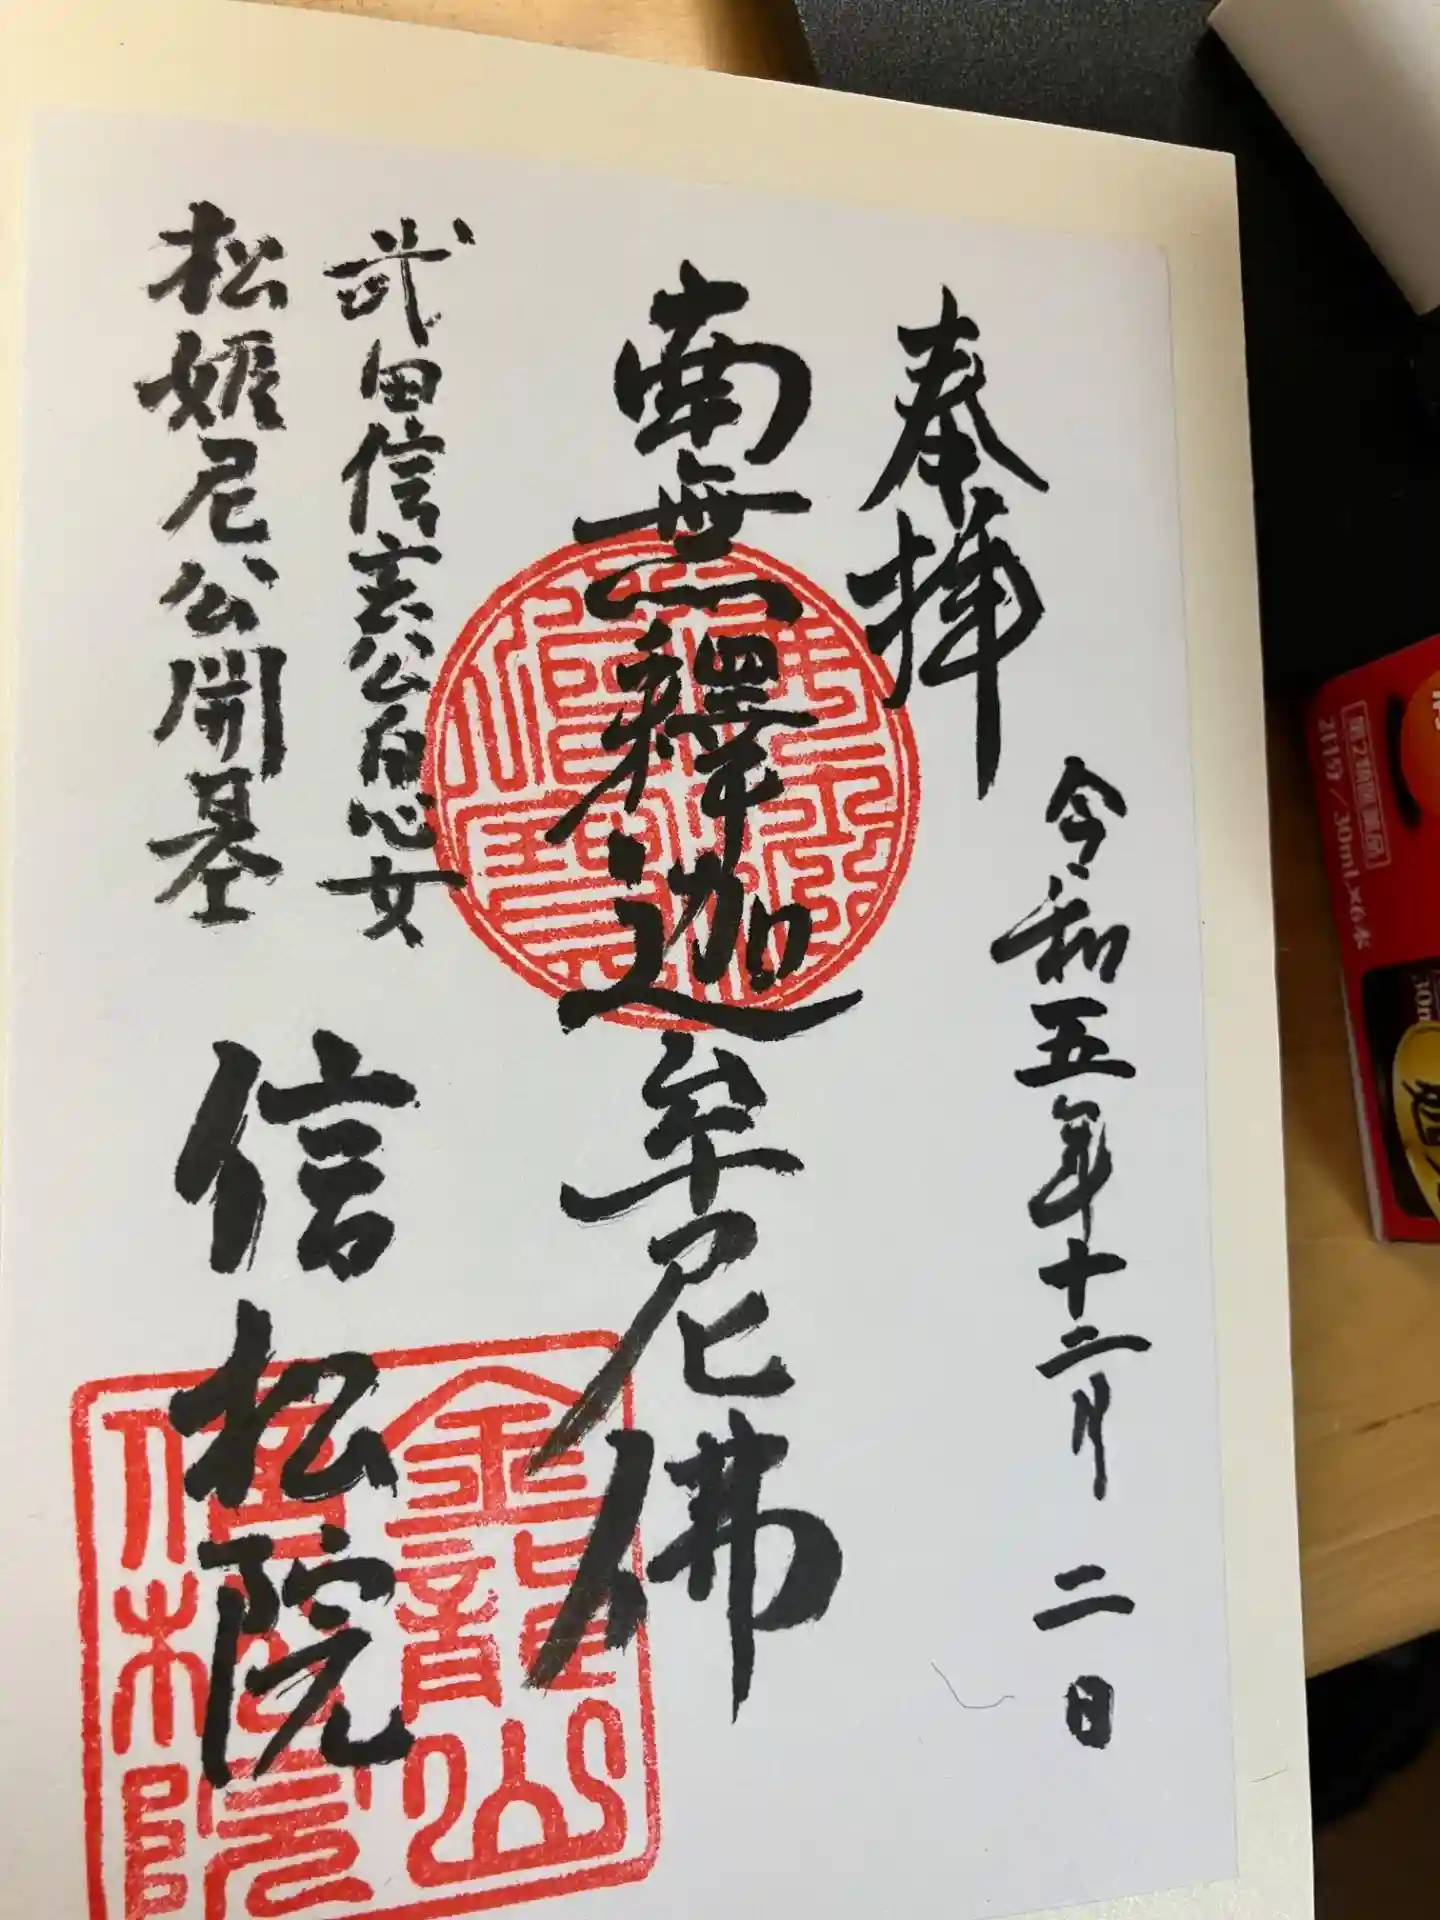 奉拝
令和五年十二月二日
南無釋迦牟尼佛
武田信玄公息女
松姫尼公開基
信松院
金龍山
信松院
第2類医薬品
2日分/30ml×6本